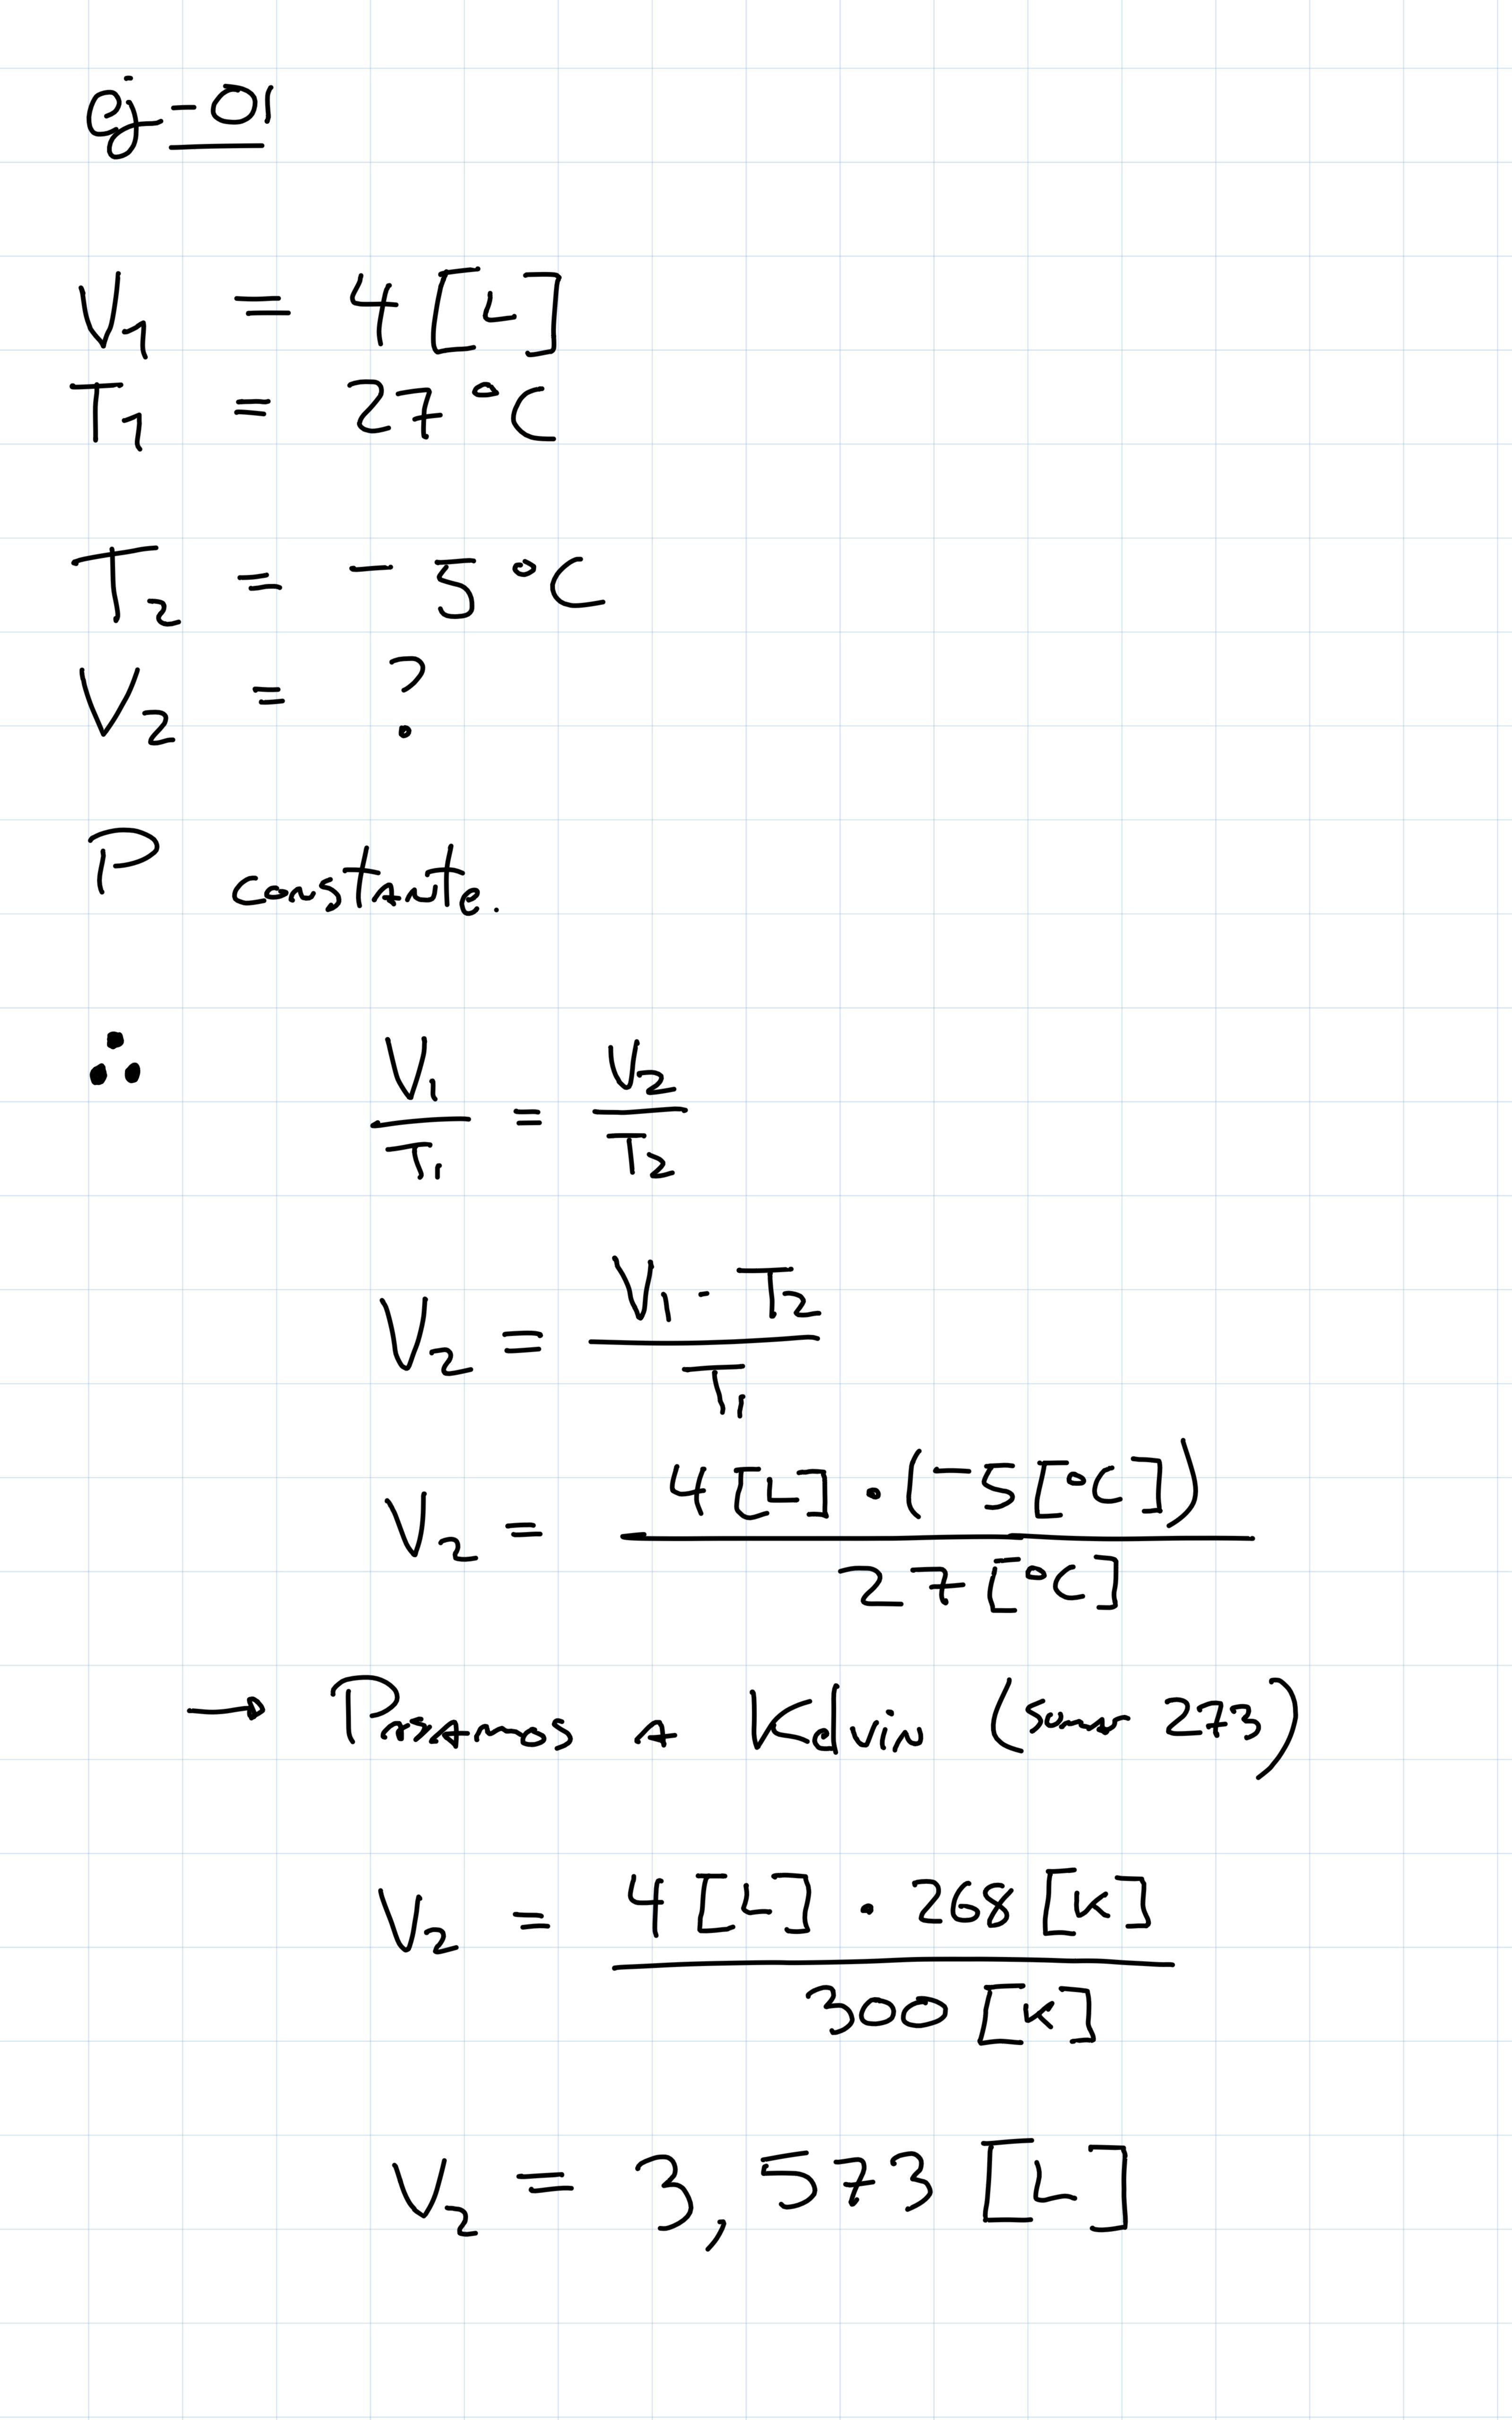 ej-01
V₁ = 4 [L]
T₁ = 27 °C
T₂ = - 5 °C
V₂ = ?
P constante.
∴ V₁/T₁ = V₂/T₂
V₂ = V₁ · T₂ / T₁
V₂ = 4 [L] · (-5 [°C]) / 27 [°C]
→ Pasamos a Kelvin (suma 273)
V₂ = 4 [L] · 268 [K] / 300 [K]
V₂ = 3,573 [L]